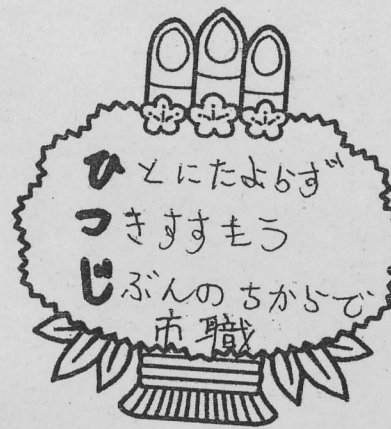 ひとにたよらず
つきすすもう
じぶんのちからで
市職